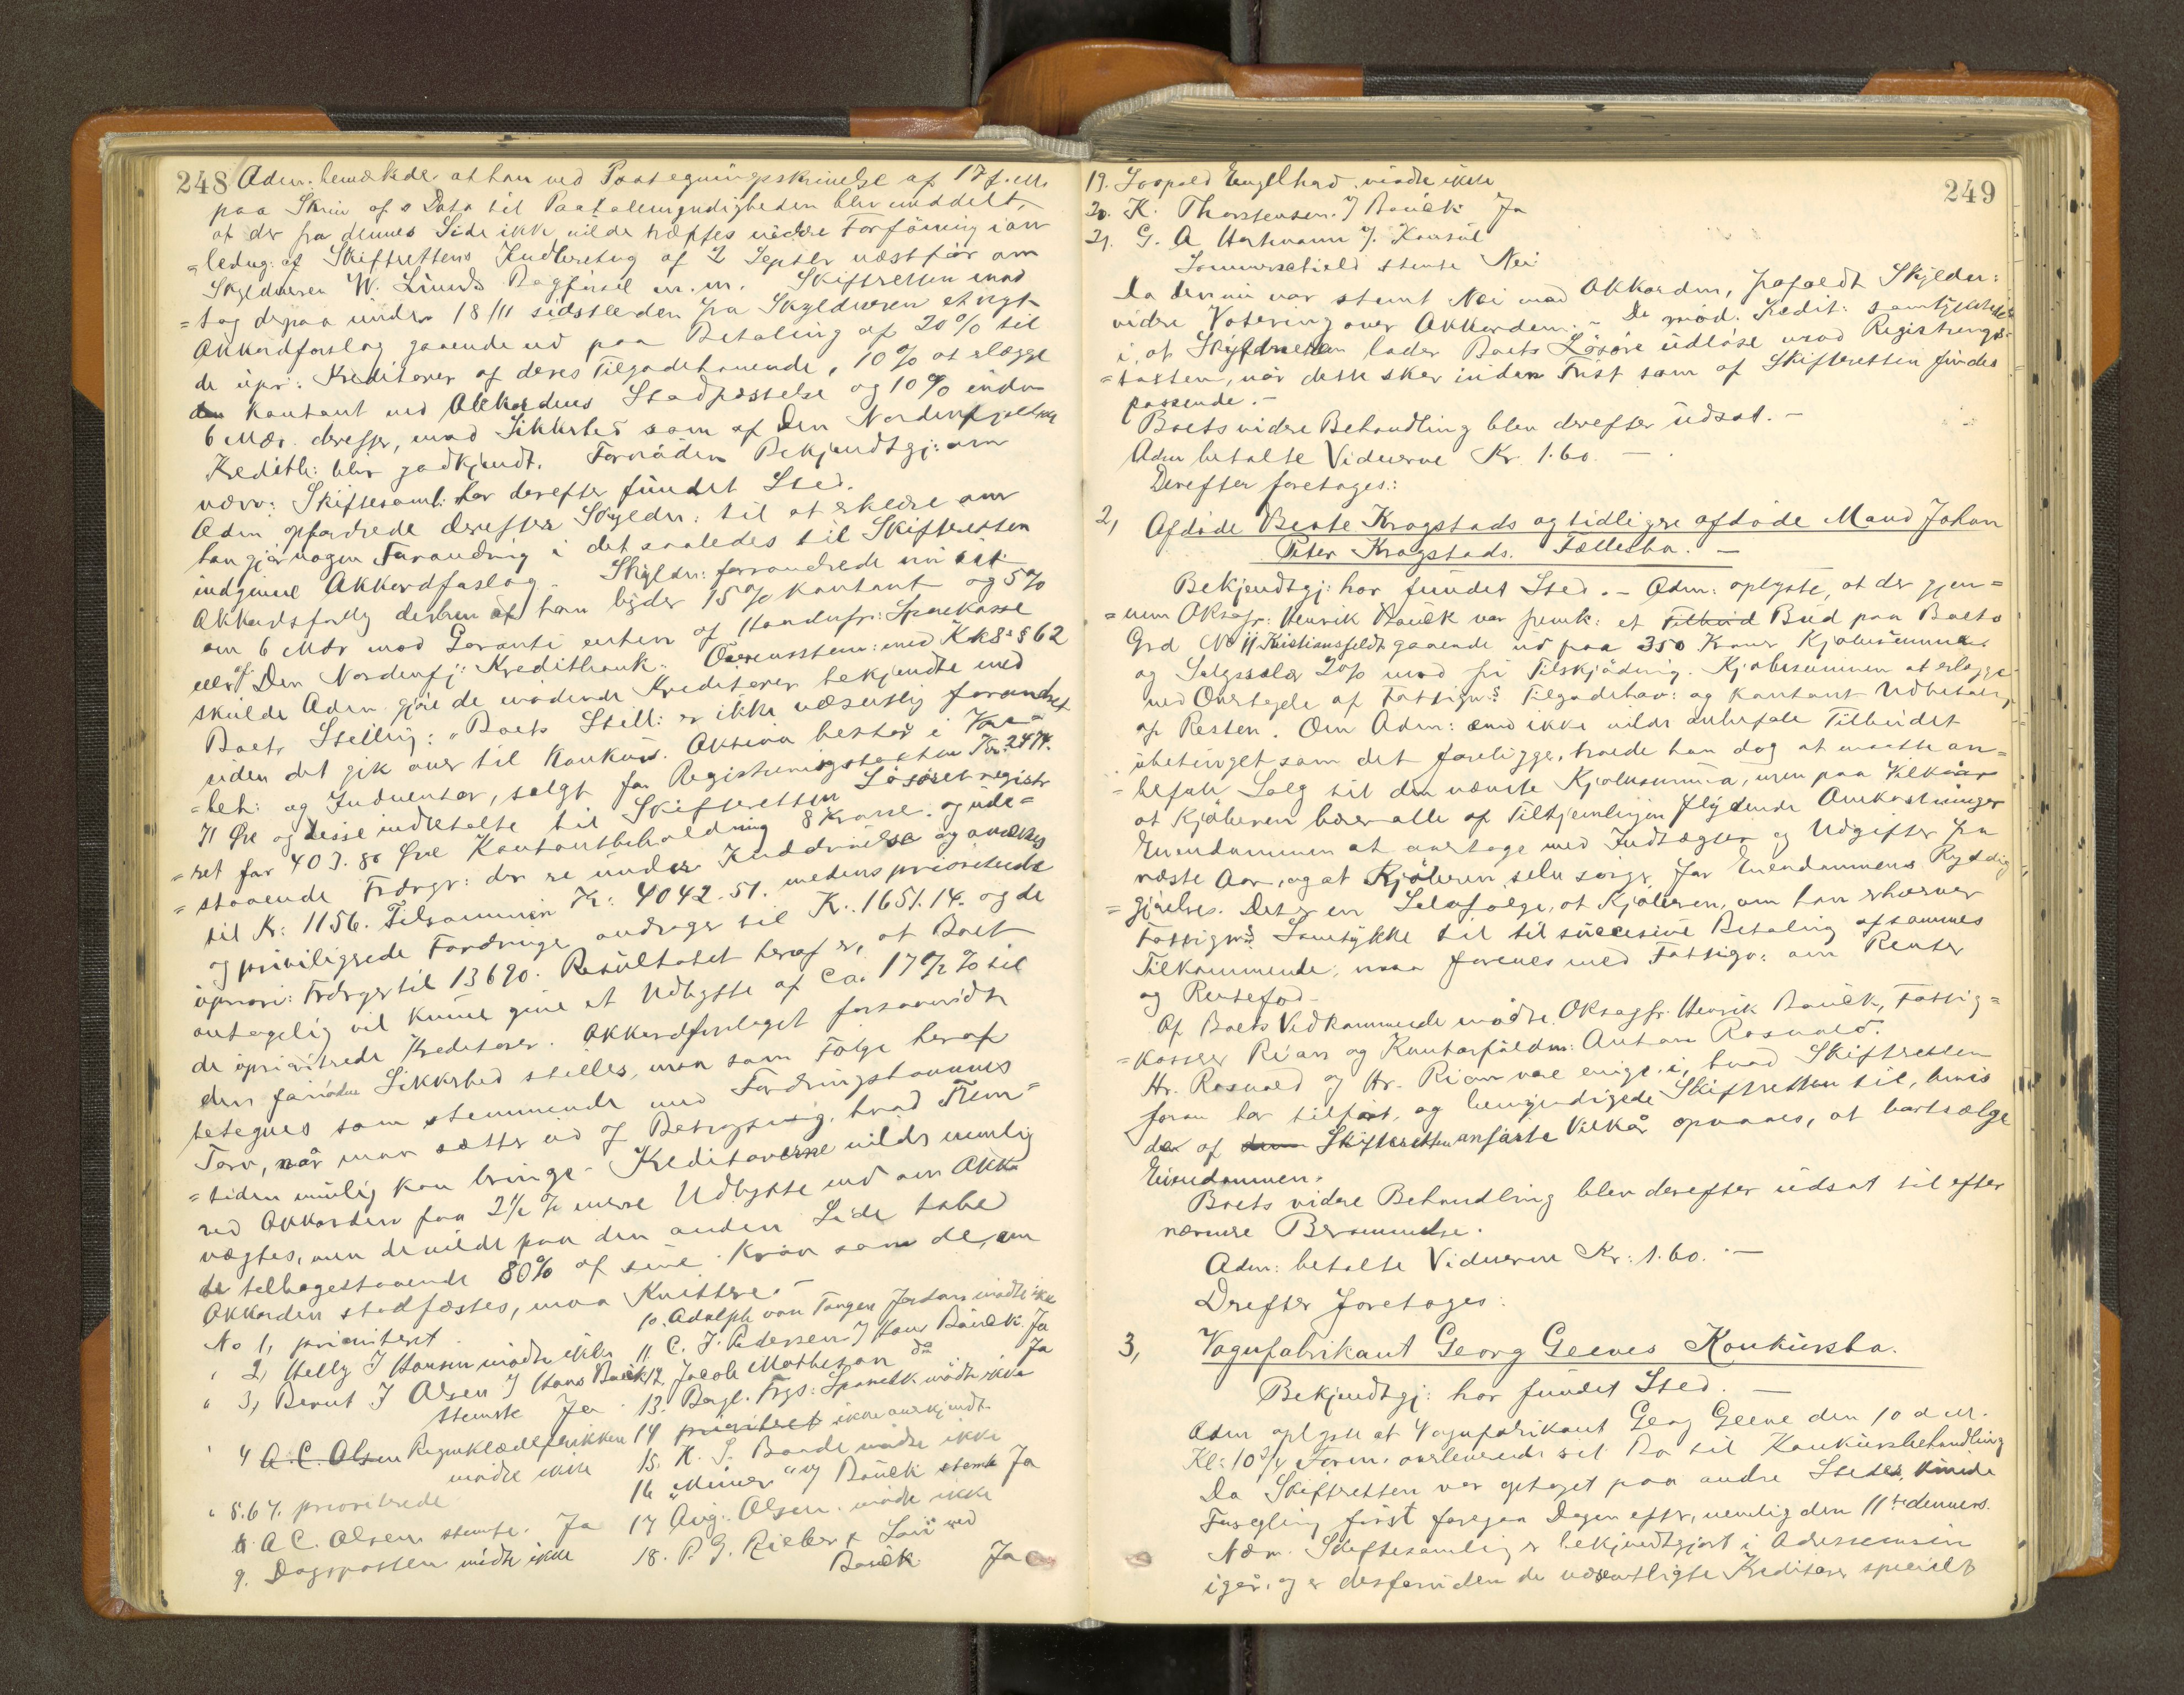 248 Adm. bemærkede, at han ved Paategningsskrivelse af 17 f. M.
paa Skriv. af s Data til Paatalemyndigheden blev meddelt,
at der fra dennes Side ikke vilde træffes videre Forføining i an
=ledng. af Skifterettens Indberetng af 2 Septbr næstfør om
Skyldneren W. Lunds Bogførsel m. m. Skifteretten mod
=tog derpaa under 18/11 sidstleden fra Skyldneren et nyt
Akkordforslag gaaende ud paa Betaling af 20% til
de upr: Kreditorer af deres Tilgodehavende, 10% at erlægge
kontant ved Akkordens Stadfæstelse og 10% inden
6 Mdr. derefter, mod Sikkerhed som af Den Nordenfjeldske
Kreditb: blev godkjendt. Fornøden Bekjendtgj: om
nærv: Skiftesaml: har derefter fundet Sted.
Adm opfordrede derefter Skyldn: til at erklære om
han gjør nogen Forandring i det saaledes til Skifteretten
indgivne Akkordforslag. Skyldn: forandrede nu sit
Akkordforslag derhen at han byder 15% kontant og 5%
om 6 Mdr mod Garanti enten af Handufr: Sparekasse
eller af Den Nordenfj: Kreditbank. Overensstem: med Kkl: § 62
skulde Adm. gjøre de mødende Kreditorer bekjendte med
Boets Stilling: "Boets Still: er ikke væsentlig forandret
siden det gik over til Konkurs. Aktiva bestod i Vare
=beh: og Inventar, solgt for Registreringstaksten Kr. 2474.
71 Øre og disse indbetalte til Skifteretten Løsøret registr
=ret for 403.80 Øre Kontantbeholdning 8 Kroner. og ude=
=staaende Fordrgr: der er under Inddrivelse og anslaaes
til Kr: 1156. Tilsammen Kr: 4042.51. medens prioriterede
og priviligerede Fordringer andrager til Kr. 1651.14. og de
uprior: Fordrger til 13690. Resultatet heraf er, at Boet
antagelig vil kunne give et Udbytte af ca. 17½% til
de uprioriterede Kreditorer. Akkordforslaget forsaavidt
den fornødne Sikkerhed stilles, maa som Følge heraf
betegnes som stemmende med Fordringshavernes
Tarv, når man sætter ud af Betragtning, hvad Frem=
=tiden mulig kan bringe. Kreditorerne vilde nemlig
ved Akkorden faa 2½% mere Udbytte end om Akk
nægtes, men de vilde paa den anden Side tabe
de tilbagestaaende 80% af sine Krav som de, om
Akkorden stadfæstes, maa Kvittere.
No 1, prioriteret.
" 2, Helly J Hansen mødte ikke
" 3, Bernt J Olsen J Hans Bauck
stemte Ja
" 4 A. C. Olsen Regnklædefabrikken
mødte ikke
" 5.6 7. prioriterede
8. A. C. Olsen stemte. Ja
9. Dagsposten mødte ikke
10. Adolph van Tangen Jordan mødte ikke
11. C. J. Pedersen J Hans Bauck. Ja
12 Jacob Mathesen do Ja
13. Bergl. Frgs: Spareblk mødte ikke
14 prioriteret ikke anerkjendt.
15. K. S. Baade mødte ikke
16 "Minerva" v Bauck stemte Ja
17 Aug. Olsen. mødte ikke
18. P. G. Rieber & Søn ved
Bauck Ja
249
19. Leopold Engelhard. mødte ikke
20. K. Thorstensen. J Bauck Ja
21. G. A Hartmann J. Konsul
Sommerschield stemte Nei
Da der nu var stemt Nei mod Akkorden, frafaldt Skyldn:
videre Votering over Akkorden. - De mød. Kredit: samtykkede
i, at Skyldneren lader Boets Løsøre udløse mod Registrerings=
=taksten, når dette sker inden Frist som af Skifteretten findes
passende. -
Boets videre Behandling blev derefter udsat. -
Adm betalte Vidnerne Kr. 1.60. -
Derefter foretoges:
2, Afdøde Beate Krogstads og tidligere afdøde Mand Johan
Peter Krogstads. Fællesbo. -
Bekjendtgj: har fundet Sted. - Adm: oplyste, at der gjen=
=nem Oksagfr: Henrik Bauck var fremk: et Tilbud Bud paa Boets
Grd No 11 Kristiansfeldt gaaende ud paa 350 Kroner Kjøbesumma
og Salgssalær 2% mod fri Tilskjødning. Kjøbesummen at erlægge
ved Overtagelse af Fattigv:s Tilgodehav: og kontant Udbetalng
af Resten. Om Adm: end ikke vilde anbefale Tilbudet
ubetinget som det foreligger, troede han dog at maatte an=
=befale Salg til den nævnte Kjøbesumma, men paa Vilkaar
at Kjøberen bærer alle af Tilhjemlingen flydende Omkostninger
Eiendommen at overtage med Indtægter og Udgifter fra
næste Aar, og at Kjøberen selv sørger for Eiendommens Ryddig
=gjørelse. Det er en Selvfølge, at Kjøberen, om han erhverver
Fattigv:s Samtykke til til succesive Betaling af sammes
Tilkommende, maa forenes med Fattigv: om Renter
og Rentefod -
Af Boets Vedkommende mødte Oksagfr. Henrik Bauck, Fattig=
=kasserer Rian og Kontorfuldm: Anton Rosvold.
Hr. Rosvold og Hr. Rian vare enige i, hvad Skifteretten
foran har tilført, og bemyndigede Skifteretten til, hvis
de af Skifteretten anførte Vilkår opnaaes, at bortsælge
Eiendommen.
Boets videre Behandling blev derefter udsat til efter
nærmere Berammelse.
Adm: betalte Vidnerne Kr: 1.60. -
Derefter foretoges:
3, Vognfabrikant Georg Geeves Konkursbo.
Bekjendtgj: har fundet Sted. -
Adm oplyste at Vognfabrikant Georg Geeve den 10 d M.
Kl: 10 3/4 Form: overleverede sit Bo til Konkursbehandling
Da Skifteretten var optaget paa andre Steder, kunde
Forsegling først foregaa Dagen efter, nemlig den 11te dennes.
Nærv. Skiftesamling er bekjendtgjort i Adresseavisen
igår, og er desforuden de væsentligste Kreditorer specielt